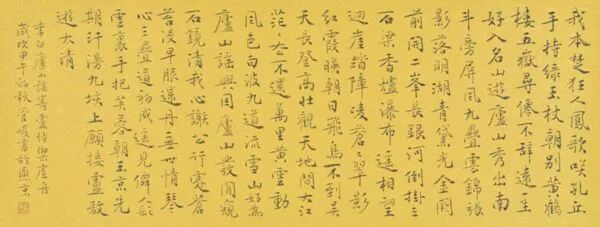 我本楚狂人鳳歌咲孔丘
手持綠玉杖朝別黃鶴
樓五嶽尋僊不辭遠一生
好入名山遊廬山秀出南
斗傍屏風九疊雲錦張
影落明湖青黛光金闕
前開二峯長銀河倒掛三
石梁香爐瀑布遙相望
迴崖沓障凌蒼〻翠影
紅霞暎朝日飛鳥不到吳
天長登高壯觀天地間大江
茫〻去不還萬里黃雲動
風色白波九道流雪山好為
廬山謠興因廬山發閒窺
石鏡清我心謝公行處蒼
苔沒早服還丹無世情琴
心三疊道初成遙見僊人彩
雲裏手把芙蓉朝玉京先
期汗漫九垓上願接盧敖
遊太清
李白廬山謠寄盧侍御虛舟
歲次甲午初秋管峻書於燕京